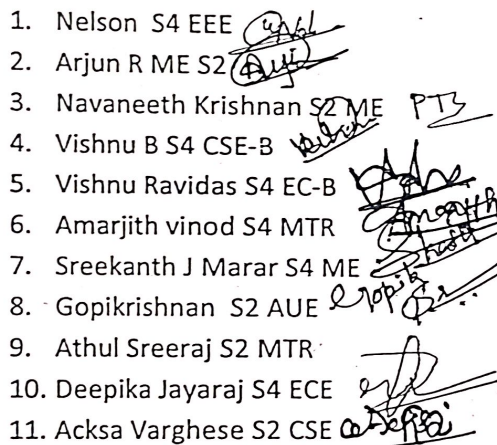 1. Nelson S4 EEE
2. Arjun R ME S2
3. Navaneeth Krishnan S2 ME PTB
4. Vishnu B S4 CSE-B
5. Vishnu Ravidas S4 EC-B
6. Amarjith vinod S4 MTR
7. Sreekanth J Marar S4 ME
8. Gopikrishnan S2 AUE Gopik
9. Athul Sreeraj S2 MTR
10. Deepika Jayaraj S4 ECE
11. Acksa Varghese S2 CSE